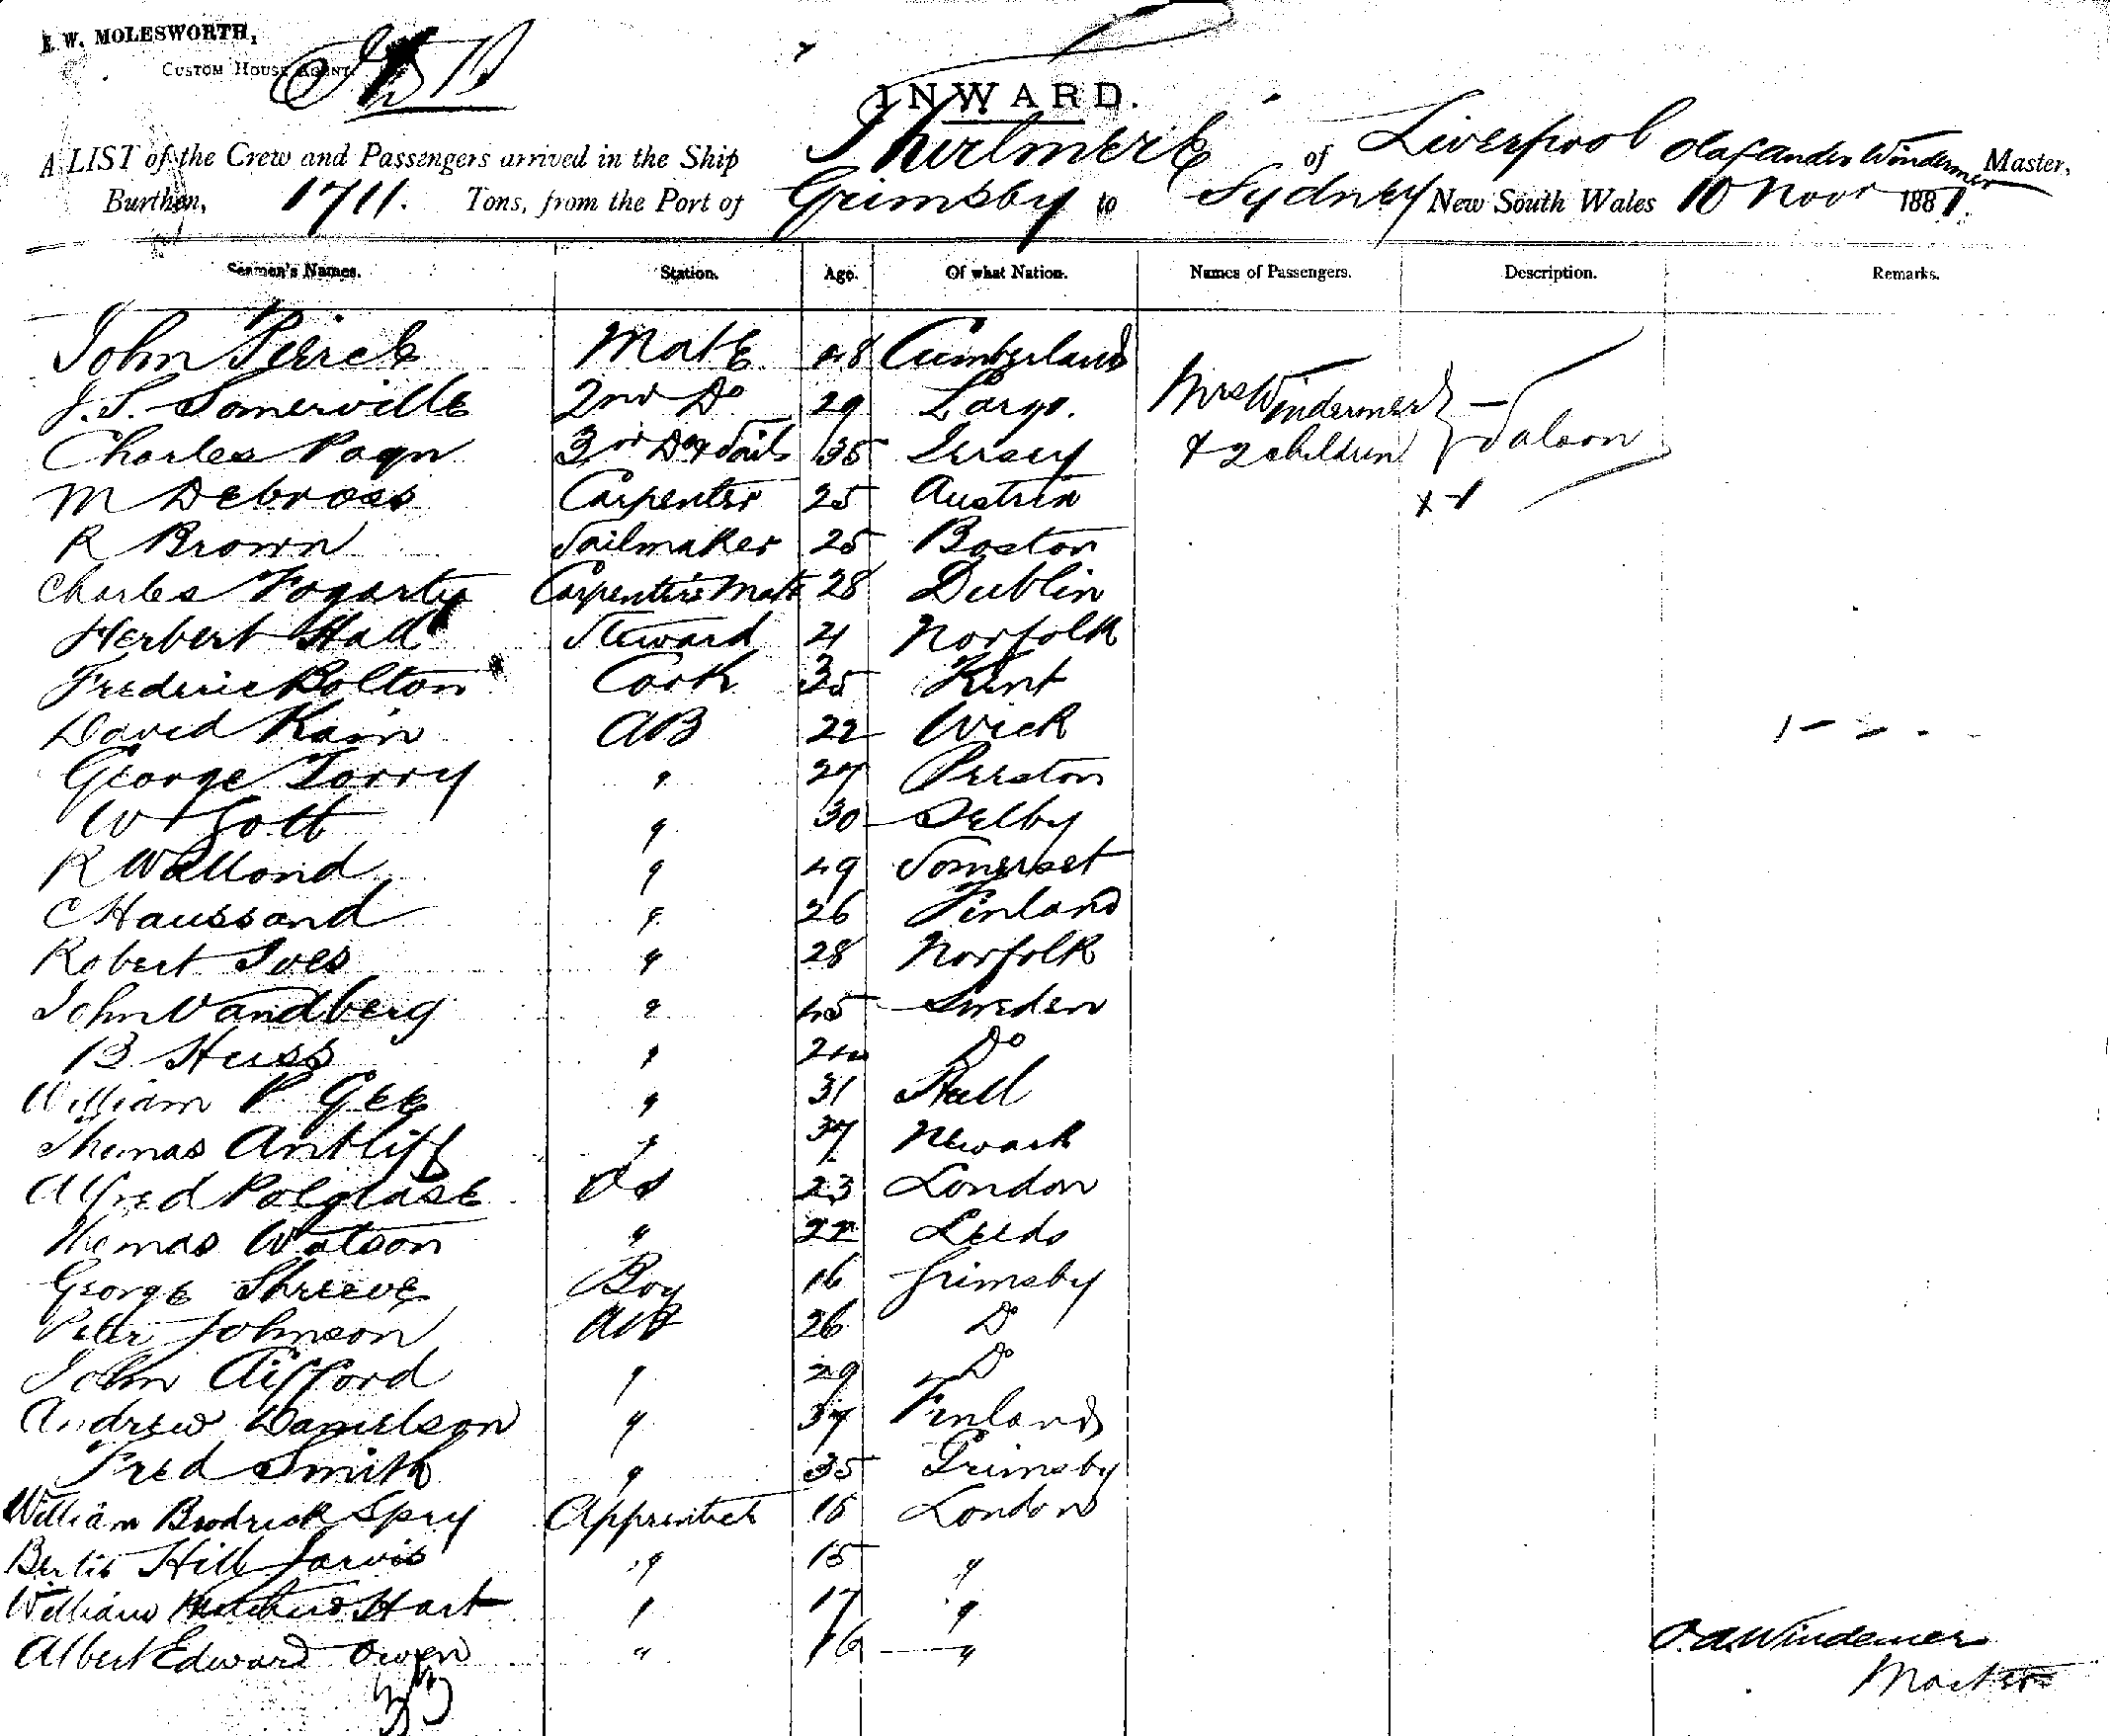 E. W. MOLESWORTH,
CUSTOM HOUSE AGENT.
INWARD.
A LIST of the Crew and Passengers arrived in the Ship Thirlmere of Liverpool Olaf Anders Windemer Master,
Burthen, 1711. Tons, from the Port of Grimsby to Sydney New South Wales 10 Novr 1881.
Seamen's Names. Station. Age. Of what Nation. Names of Passengers. Description. Remarks.
John Peirce Mate 48 Cumberland
J. S. Somerville 2nd Do 29 Largo. Mrs Windemer
Charles Payn 3rd Do & Sails 35 Jersey & 2 children Saloon
M Debross Carpenter 25 Austria
R Brown Sailmaker 25 Boston
Charles Fogarty Carpenters Mate 28 Dublin
Herbert Hall Steward 21 Norfolk
Frederic Bolton Cook 35 Kent
David Kain AB 22 Wick
George Torry " 27 Preston
W Gott " 30 Selby
R Wallond " 49 Somerset
C Haussand " 26 Finland
Robert Ives " 28 Norfolk
John Vandberg " 45 Sweden
B Huss " 24 Do
William P Gee " 31 Hull
Thomas Antliff " 37 Newark
Alfred Polglase Do 23 London
Thomas Watson " 22 Leeds
George Shreeve Boy 16 Grimsby
Peter Johnson AB 26 Do
John Clifford " 29 Do
Andrew Danielson " 37 Finland
Fred Smith " 35 Grimsby
William Brodrick Spry Apprentice 15 London
Bertie Hill Jarvis " 15 "
William Hart " 17 "
Albert Edward Owen " 16 "
O. A. Windemer
Master